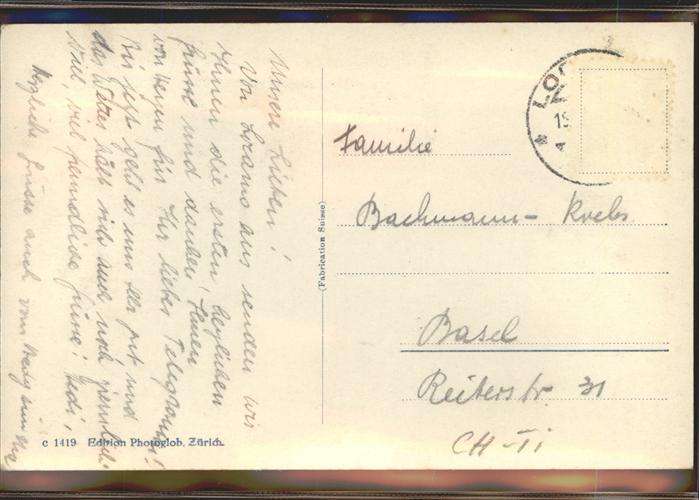 Unsere Lieben!
Von Locarno aus senden wir
Ihnen die ersten herzlichen
Grüsse und danken Ihnen
von Herzen für Ihr liebes Telegramm!
Bis jetzt geht es uns sehr gut und
das Wetter hält sich auch noch ziemlich
viel, viel freundliche Grüsse!
Herzliche Grüsse auch vom
c 1419 Edition Photoglob, Zürich.
(Fabrication Suisse)
LOC
19
Familie
Bachmann-Krebs
Basel
Reiterstr. 31
CH-Ti